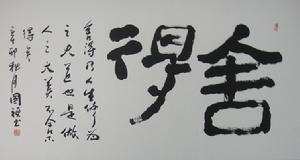 舍得
舍得乃人生修为
之大道也是做
人之大美不舍
得
辛卯秋月國